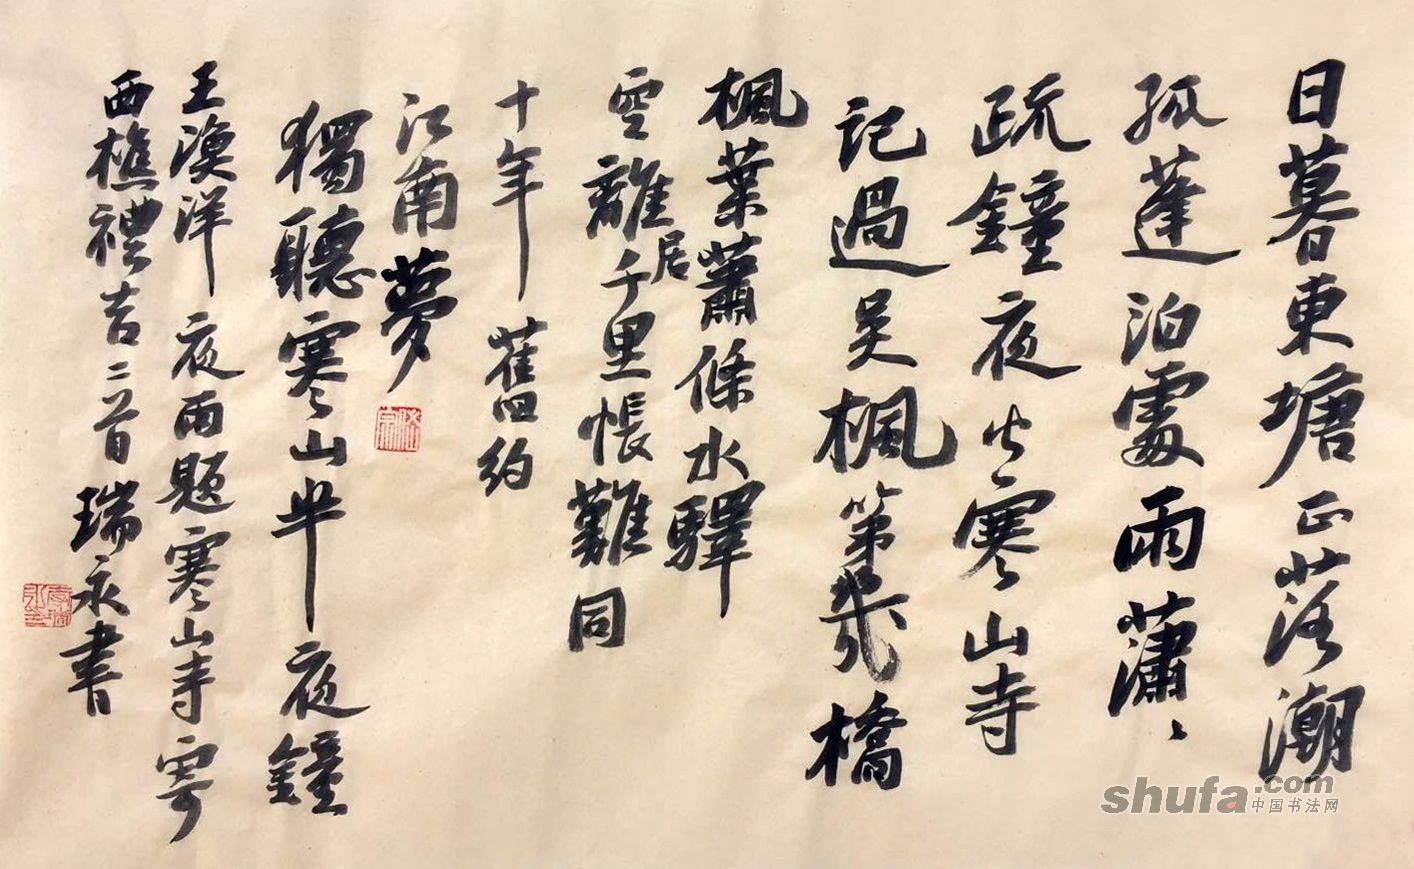 日暮東塘正落潮
孤蓬泊處雨瀟〻
疏鐘夜火寒山寺
記過吳楓第幾橋
楓葉蕭條水驛
空離居千里悵難同
十年舊約
江南夢
獨聽寒山半夜鐘
王漁洋夜雨題寒山寺寄
西樵禮吉二首瑞永書
shufa.com
中国书法网